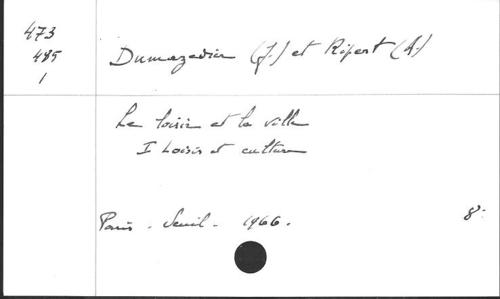 473
485
1
Dumazedier (J.) et Ripert (A.)
Le loisir et la ville
I Loisir et culture
Paris - Seuil - 1966.
8°